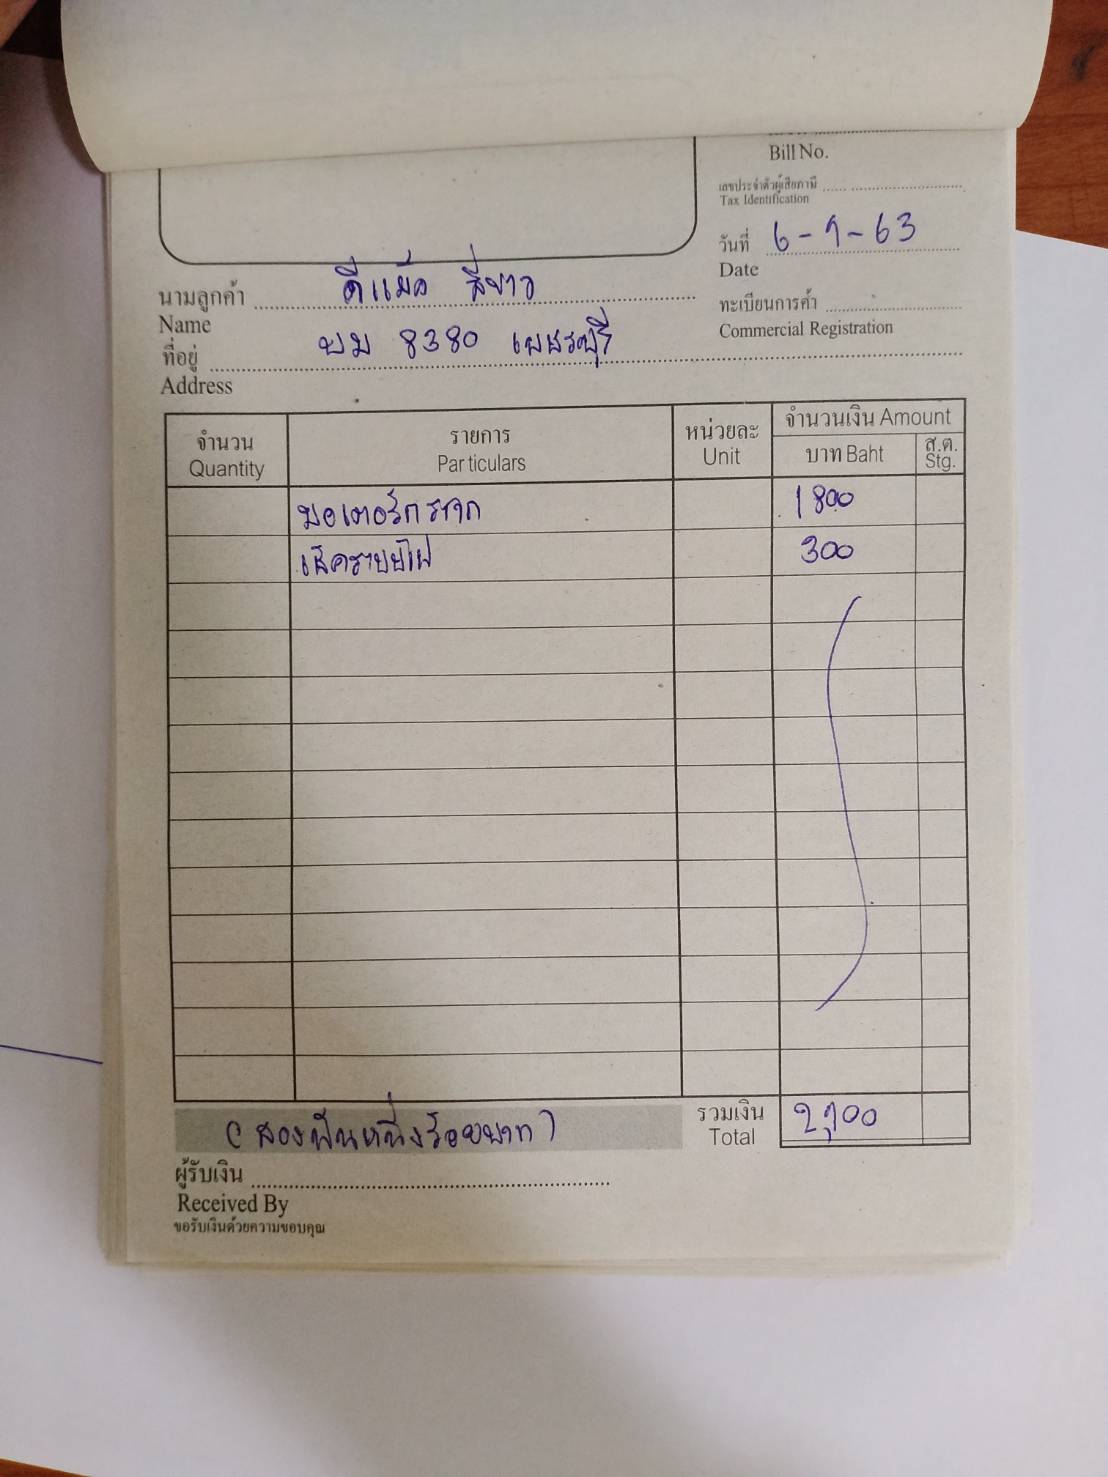 Bill No.
เลขประจำตัวผู้เสียภาษี
Tax Identification
วันที่ 6-9-63
Date
นามลูกค้า ดีแม็ค สีขาว
Name
ทะเบียนการค้า
Commercial Registration
ที่อยู่ บม 8380 เพชรบุรี
Address
จำนวน รายการ หน่วยละ จำนวนเงิน Amount
Quantity Particulars Unit บาท Baht ส.ต. Stg.
มอเตอร์กระจก 1800
300
(สองพันหนึ่งร้อยบาท) รวมเงิน 2,100
Total
ผู้รับเงิน
Received By
ขอรับเงินด้วยความขอบคุณ